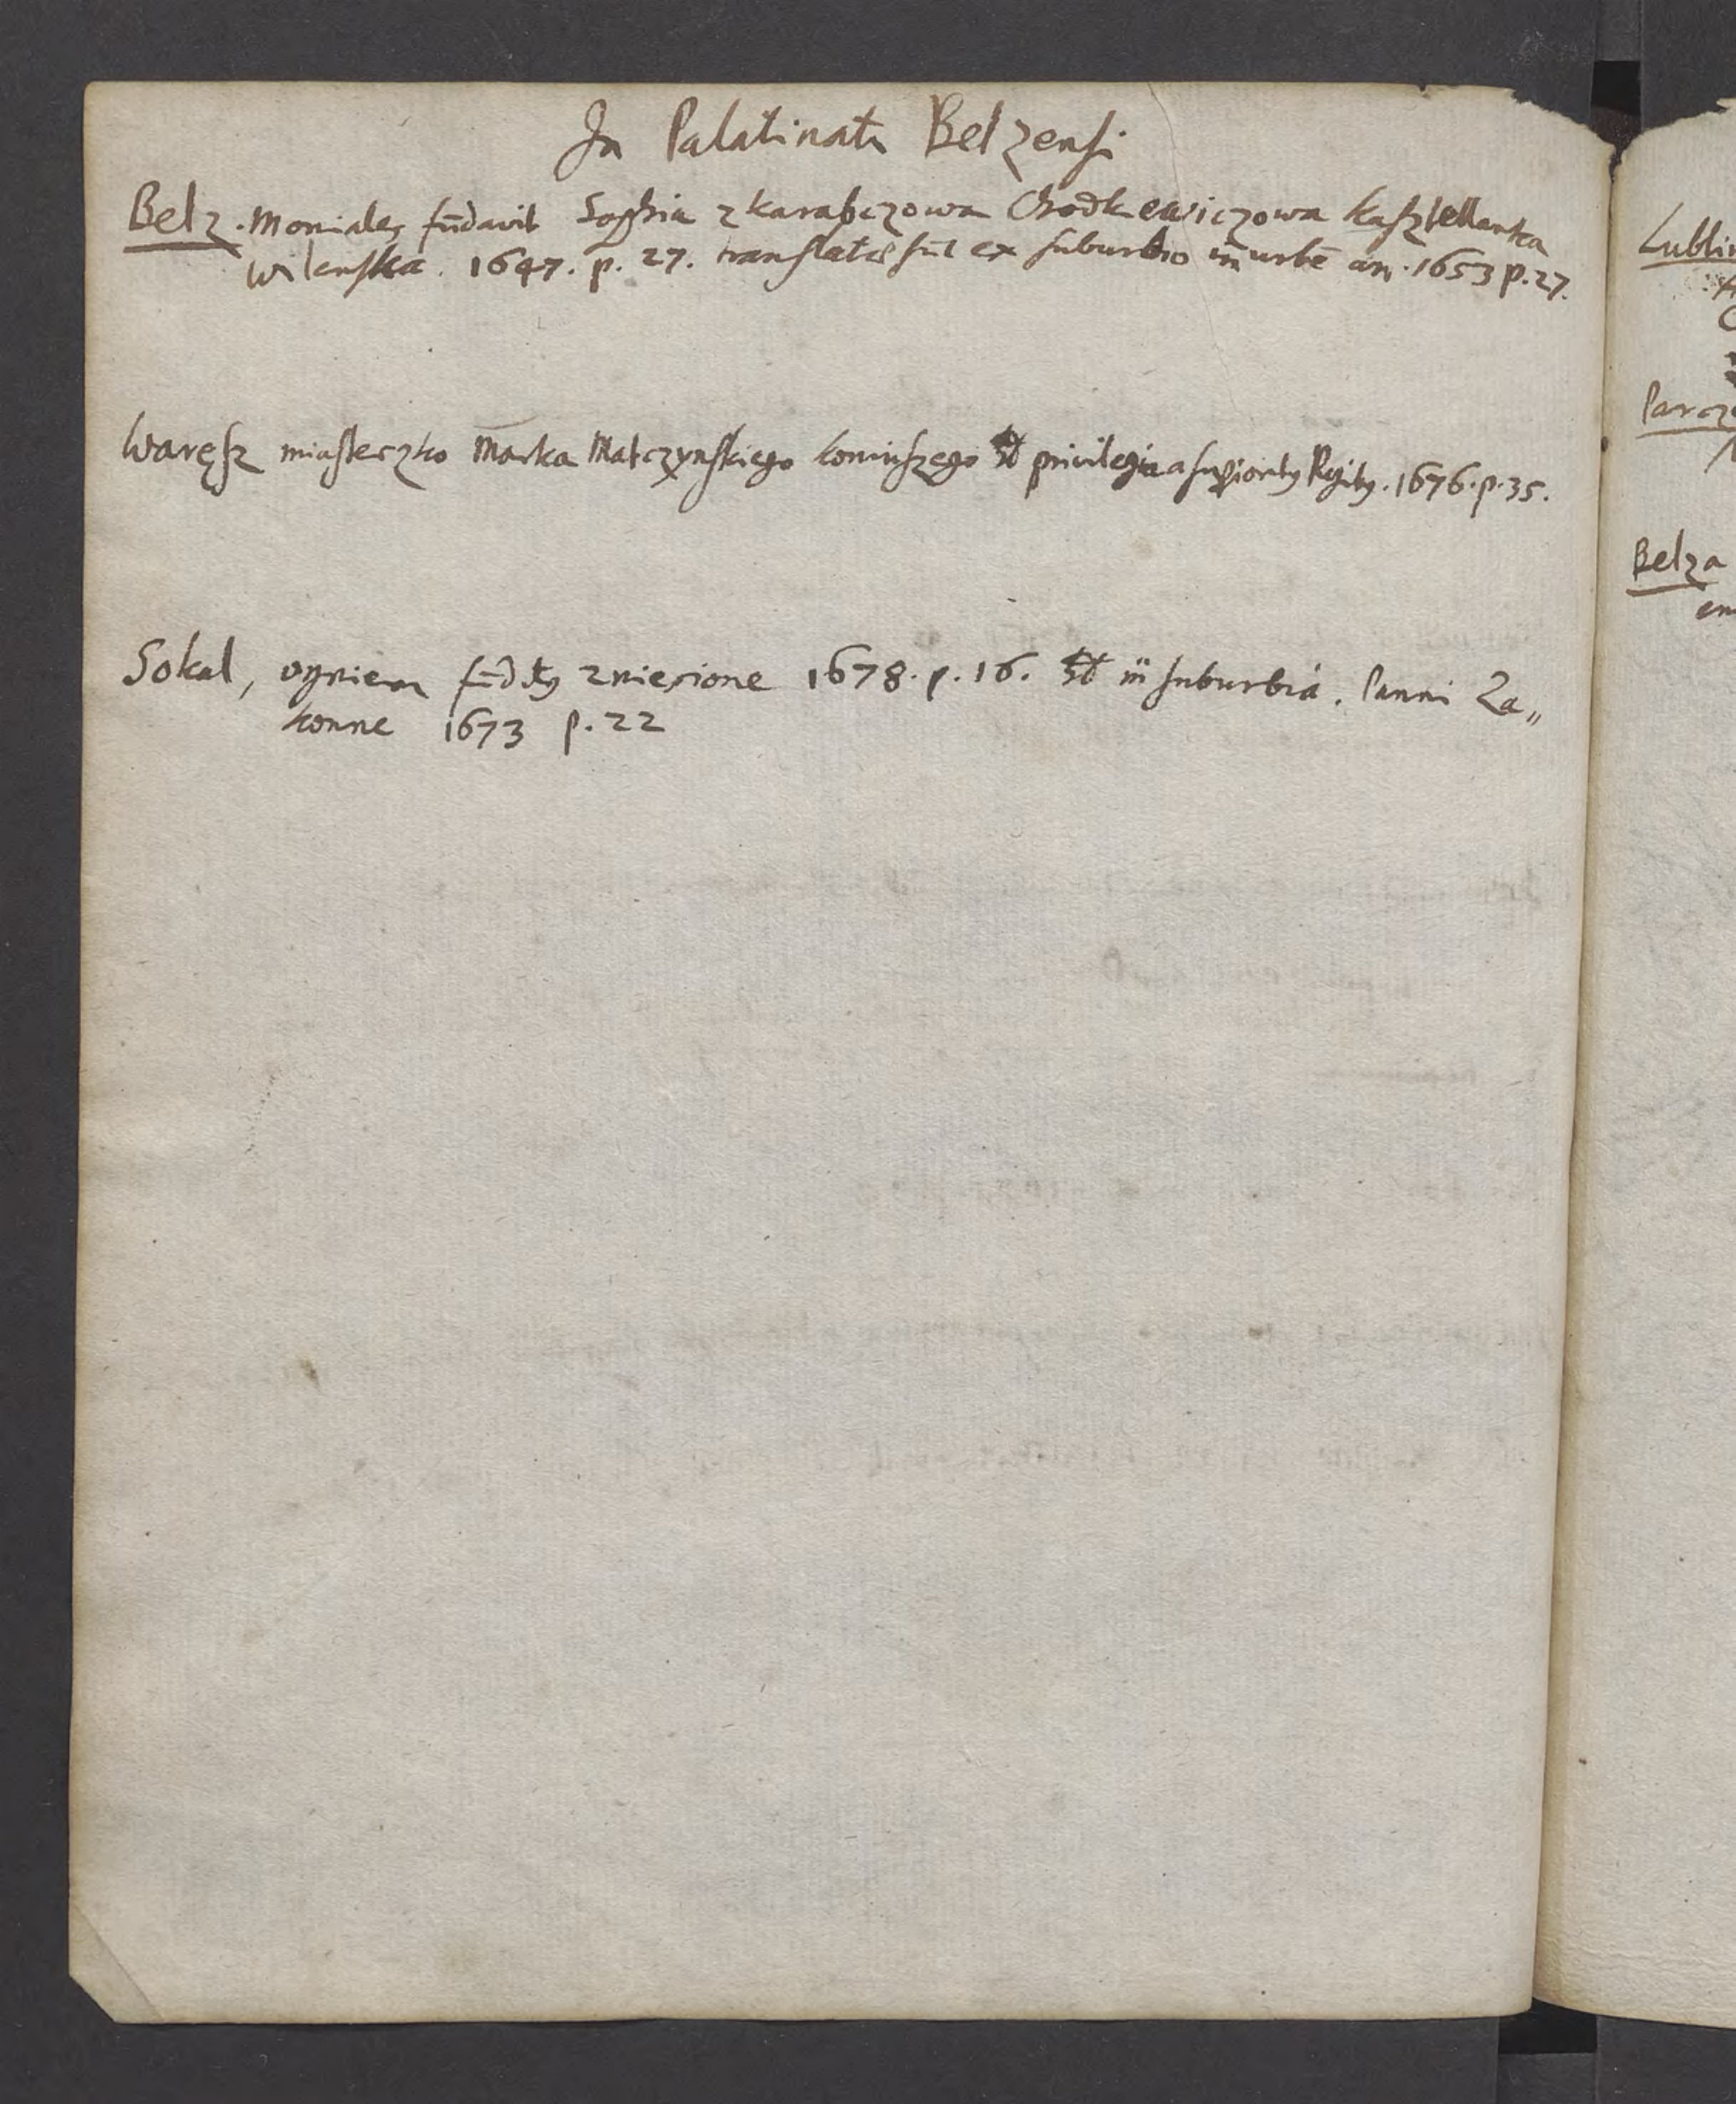 In Palatinatu Belzensi
Belz. Moniales fūdavit Sophia z karabczowa Chodkewiczowa kasztellanka
wilenska. 1647. p. 27. translatæ sūt ex suburbio in urbē an. 1653 p. 27.
Waręsz miasteczko Marka Matczynskiego koniuszego privilegia 1676. p. 35.
Sokal, ogniem zniesione 1678. p. 16. suburbia. Panni Za„
konne 1673 p. 22
Lublin
Parcz
Belza